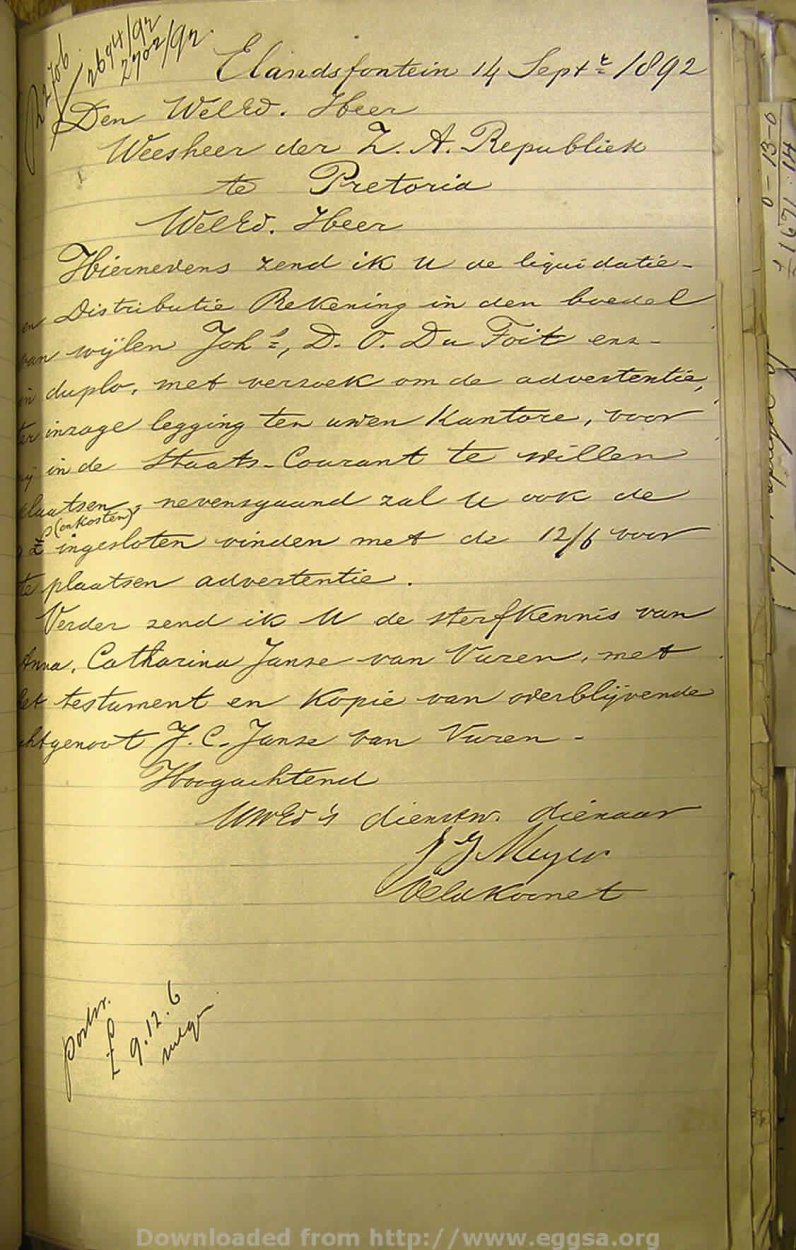 R 2706
2694/92
2702/92.
Elandsfontein 14 Septr 1892
Den WelEd. Heer
Weesheer der Z. A. Republiek
te Pretoria
WelEd. Heer
Hiernevens zend ik U de liquidatie-
en Distributie Rekening in den boedel
van wijlen Johs, D. O. Du Toit enz-
in duplo, met verzoek om de advertentie,
ter inzage legging ten uwen Kantore, voor
mij in de Staats-Courant te willen
plaatsen, nevensgaand zal U ook de
£ (onkosten) ingesloten vinden met de 12/6 voor
te plaatsen advertentie.
Verder zend ik U de sterfkennis van
Anna, Catharina Janse van Vuren, met
het testament en Kopie van overblijvende
echtgenoot J. C. Janse van Vuren -
Hoogachtend
UWEd's dienstw. dienaar
J J Meyer
Veldkornet
£ 9.12.6
0-13-0
£1671.14
Downloaded from http://www.eggsa.org